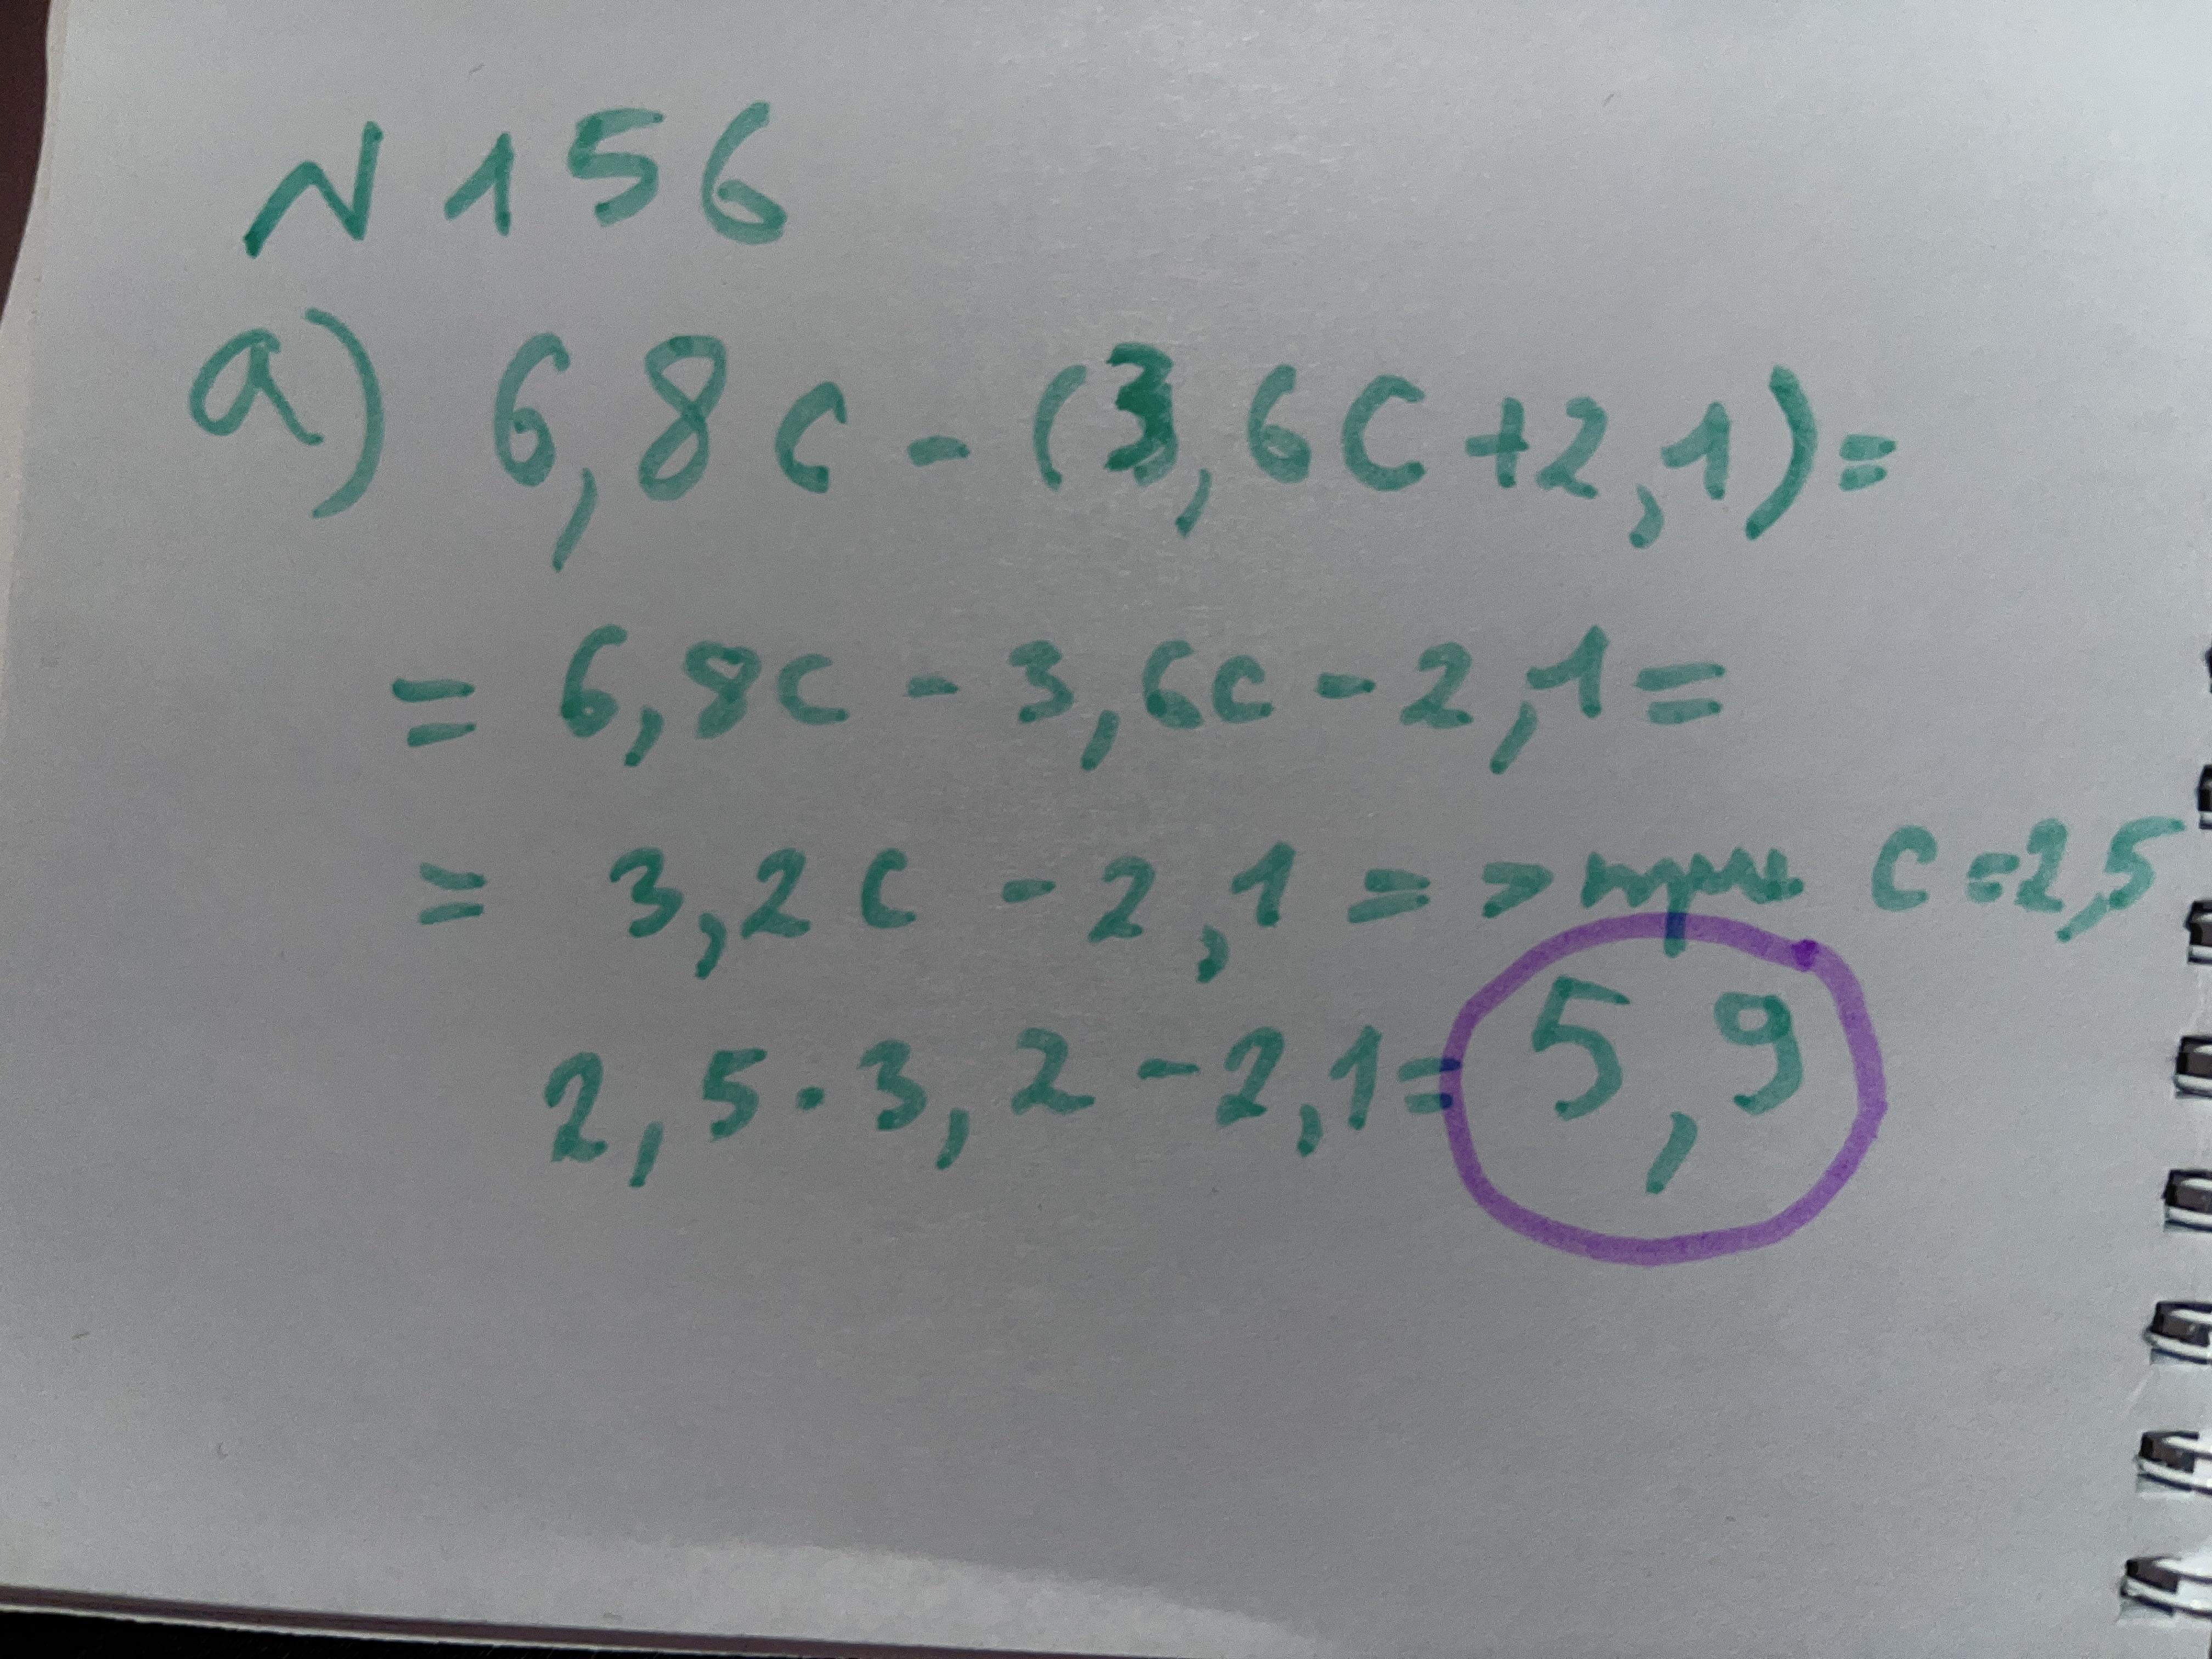 N 156
а) 6,8c - (3,6c+2,1)=
= 6,8c - 3,6c - 2,1=
= 3,2c - 2,1 = > при c=2,5
2,5·3,2-2,1= 5,9